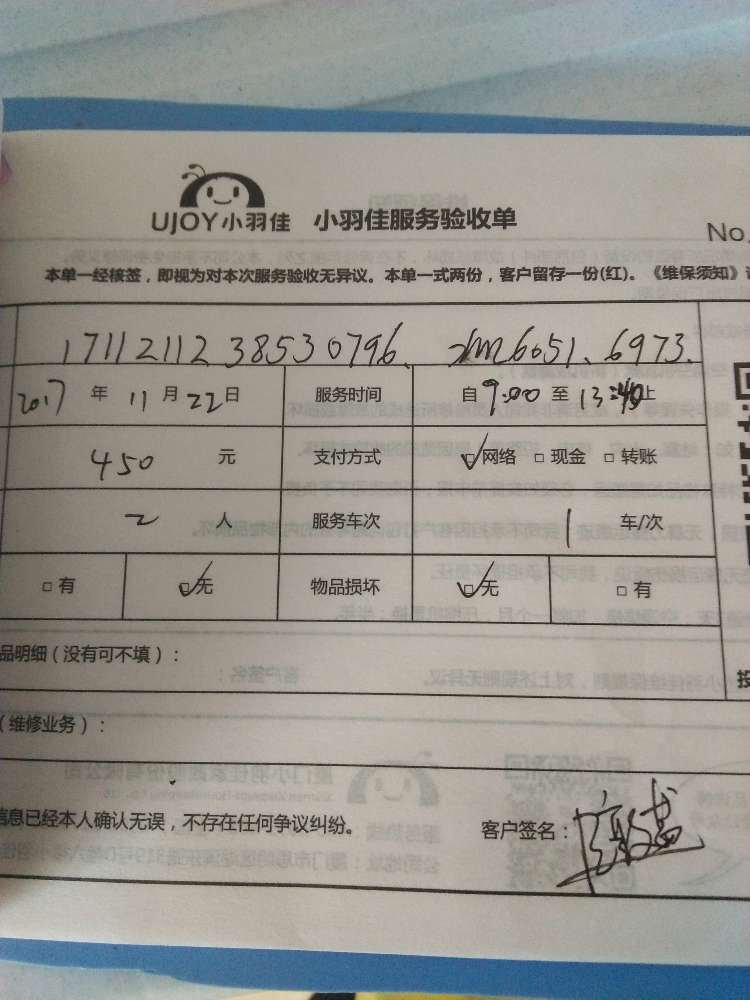 UJOY小羽佳 小羽佳服务验收单
No.
本单一经核签，即视为对本次服务验收无异议。本单一式两份，客户留存一份(红)。《维保须知》
17112112 38530796. 6051.6973.
2017 年 11 月 22 日 服务时间 自 9:00 至 13:40 止
450 元 支付方式 ☑网络 □现金 □转账
2 人 服务车次 1 车/次
□有 ☑无 物品损坏 ☑无 □有
品明细（没有可不填）：
（维修业务）：
信息已经本人确认无误，不存在任何争议纠纷。 客户签名：